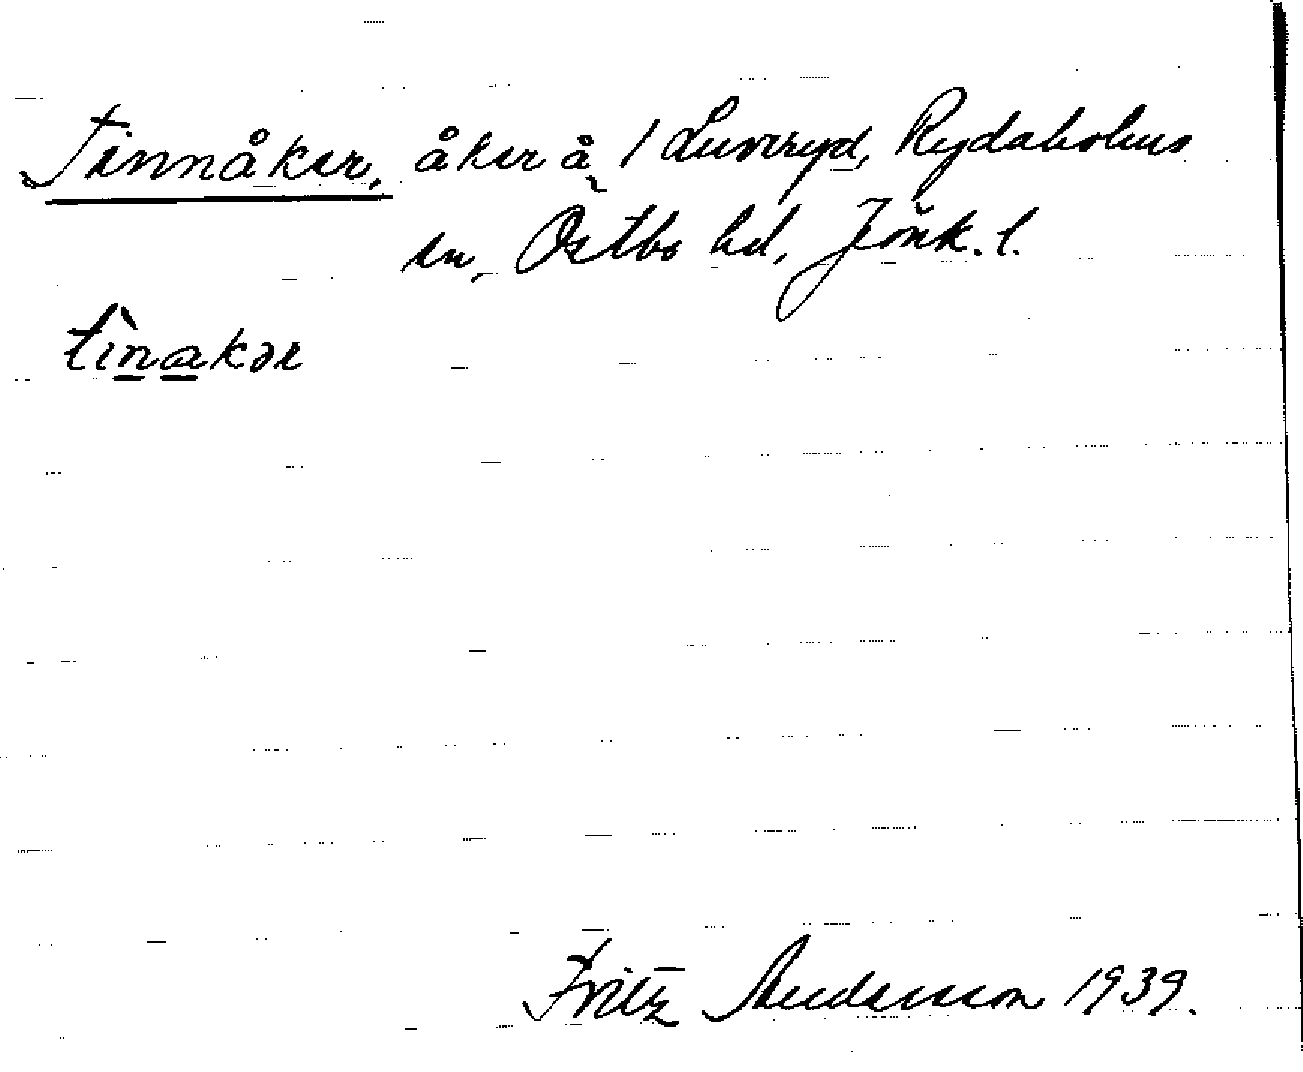 Tinnåker, åker å / Luneryd, Rydaholms
sn, Östbo hd, Jönk. l.
tìnakər
Fritz Andersson 1939.